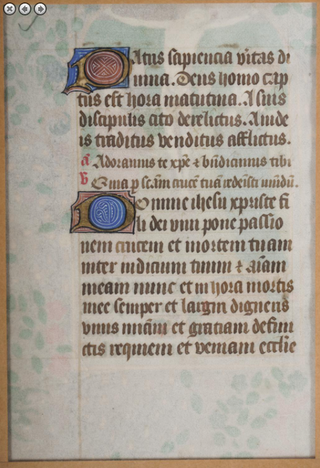 Patris sapiencia vitas di
uina. Deus homo cap
tus est hora matutina. A suis
discipulis cito derelictus. A iude
is traditus venditus afflictus.
Adoramus te xpe & bn̄dicimus tibi
Quia p sc̄am crucē tuā redemisti mūdū.
Domine ihesu xpriste fi
li dei viui pone passio
nem crucem et mortem tuam
inter iudicium tuum & aīam
meam nunc et in hora mortis
mee semper et largiri digneris
viuis miām et gratiam defun
ctis requiem et veniam ecclie